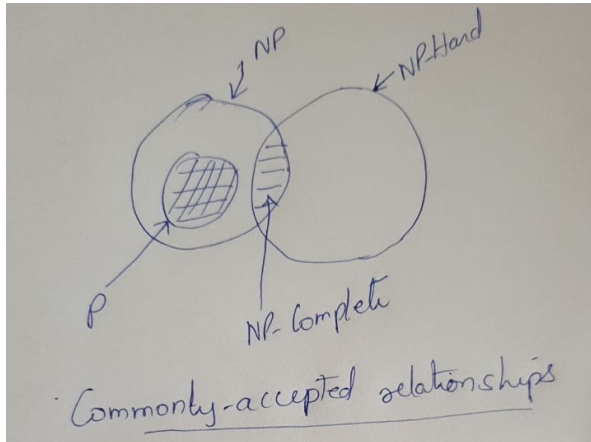 NP
NP-Hard
P
NP-Complete
Commonly-accepted relationships